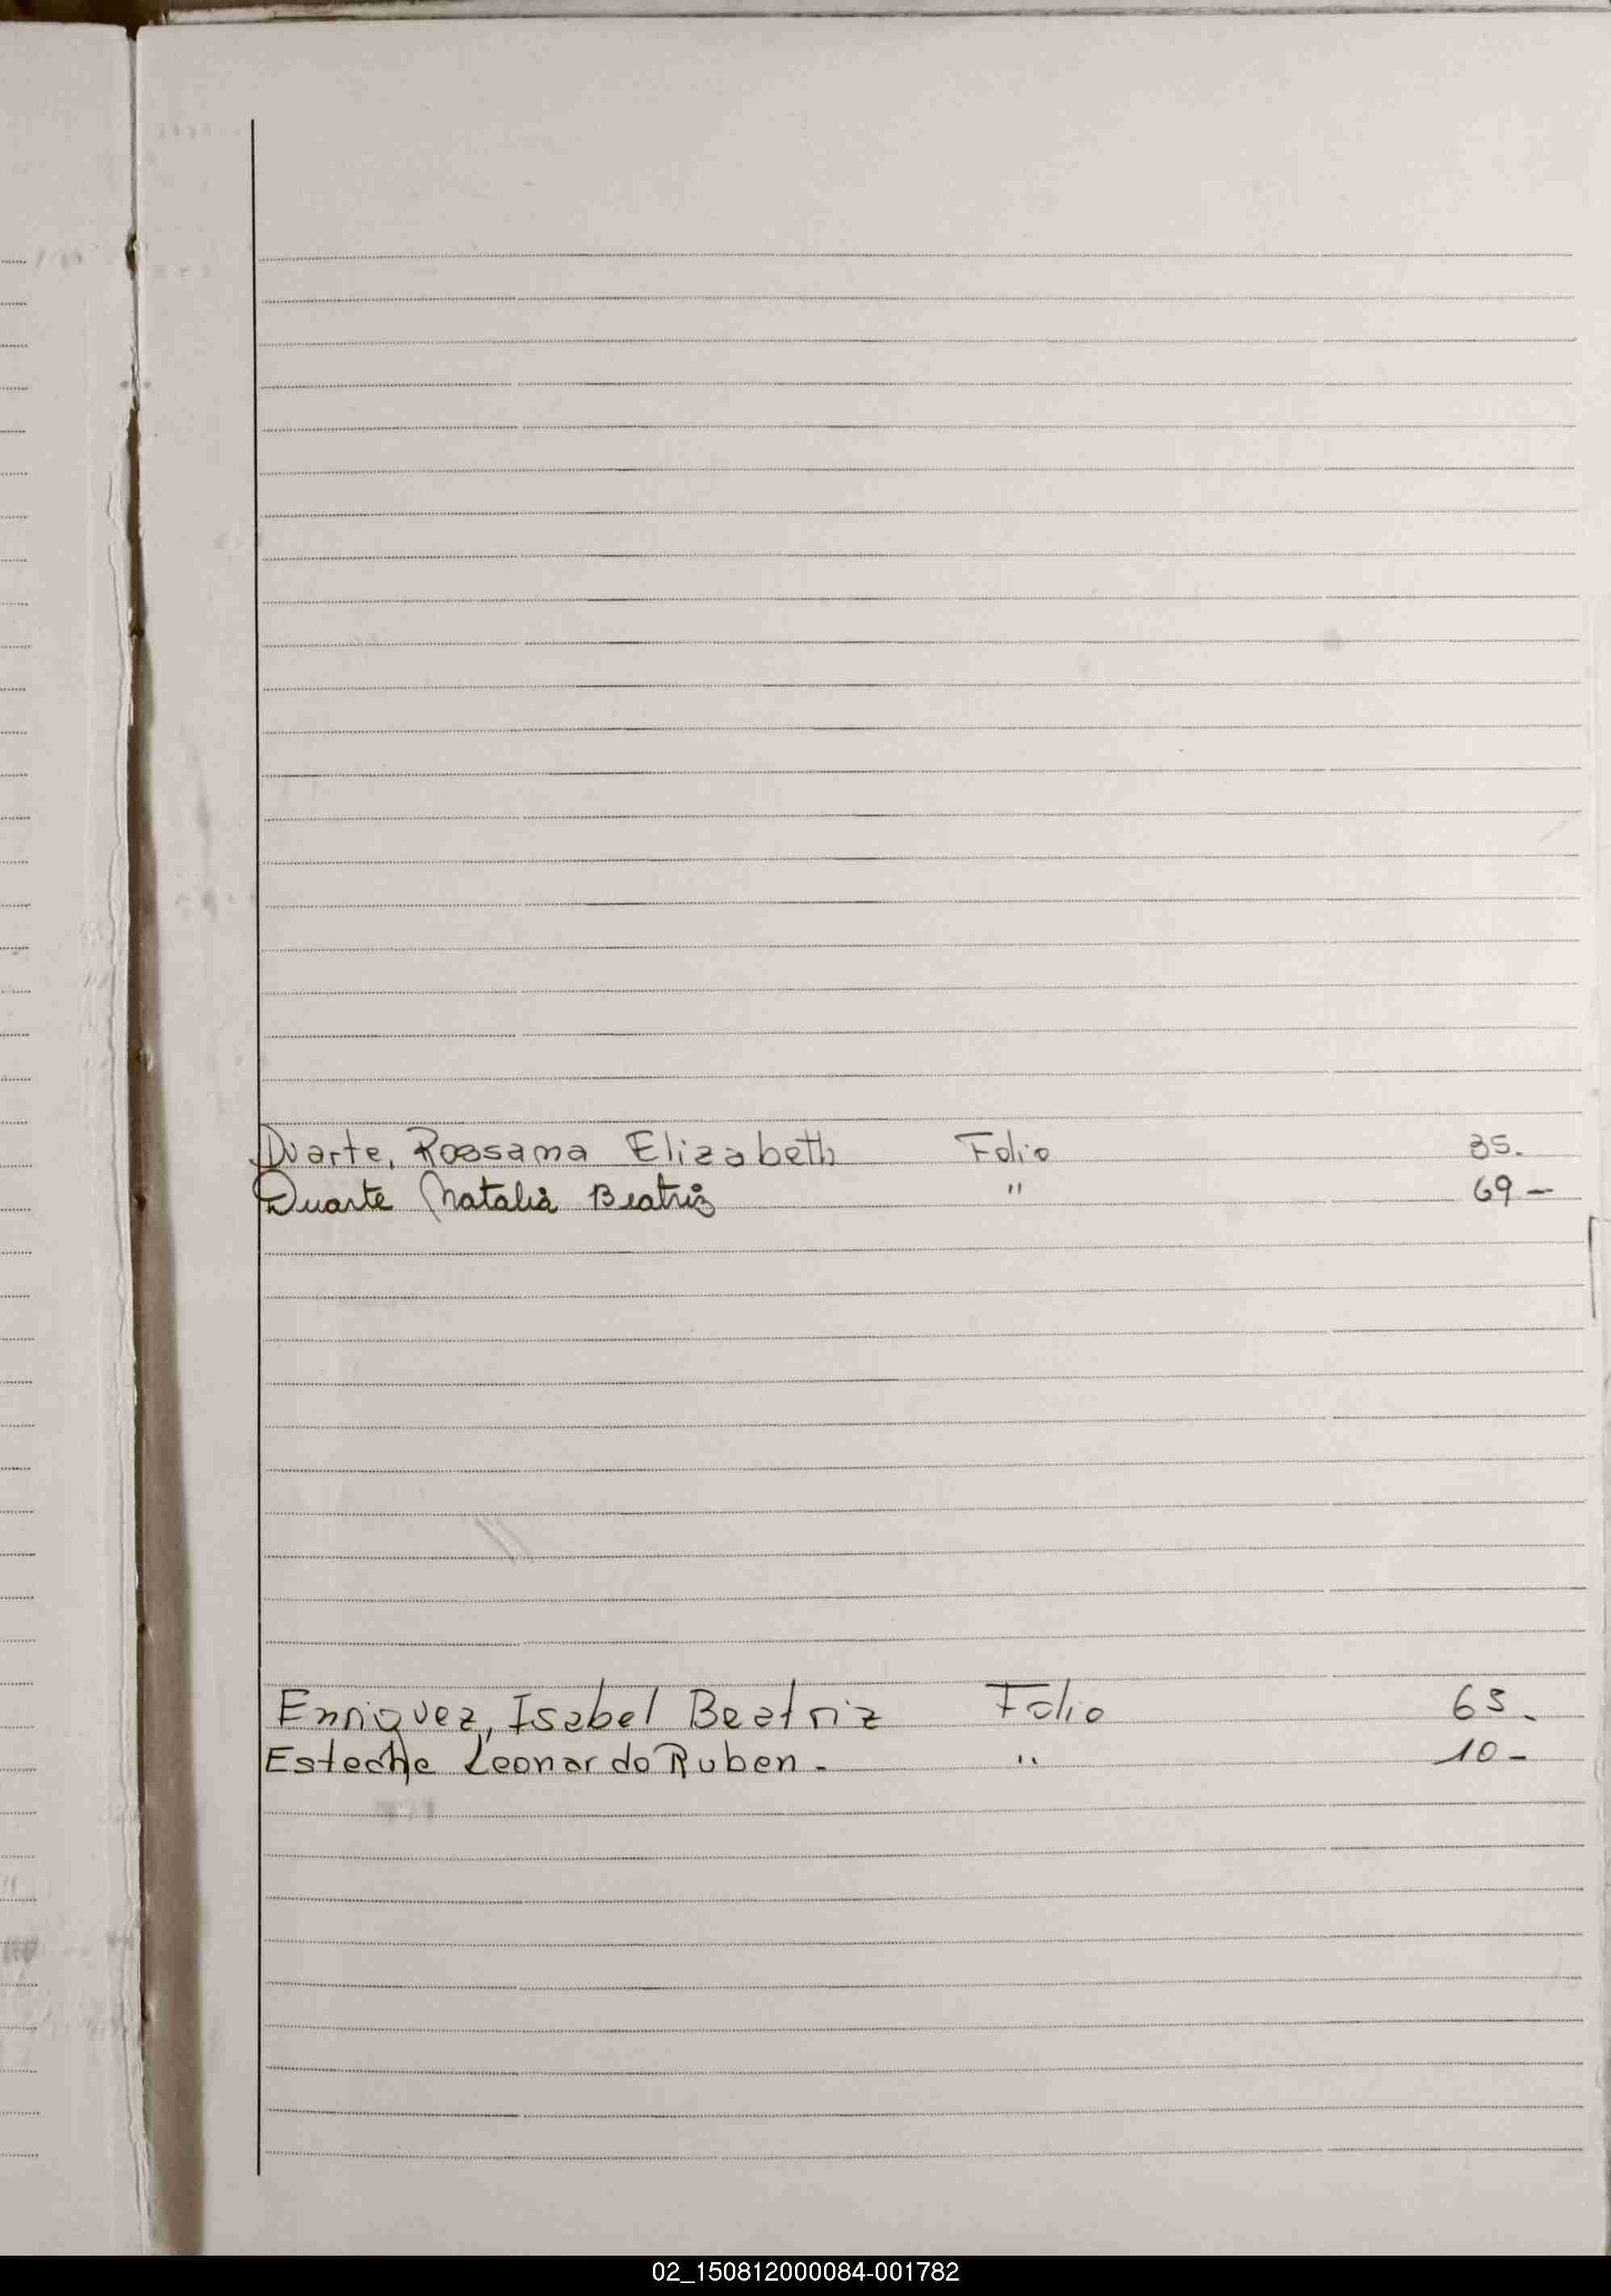 Duarte, Rossana Elizabeth Folio 35.
Duarte Natalia Beatriz " 69 -
Enriquez, Isabel Beatriz Folio 63.
Esteche Leonardo Ruben. " 10 -
02_150812000084-001782